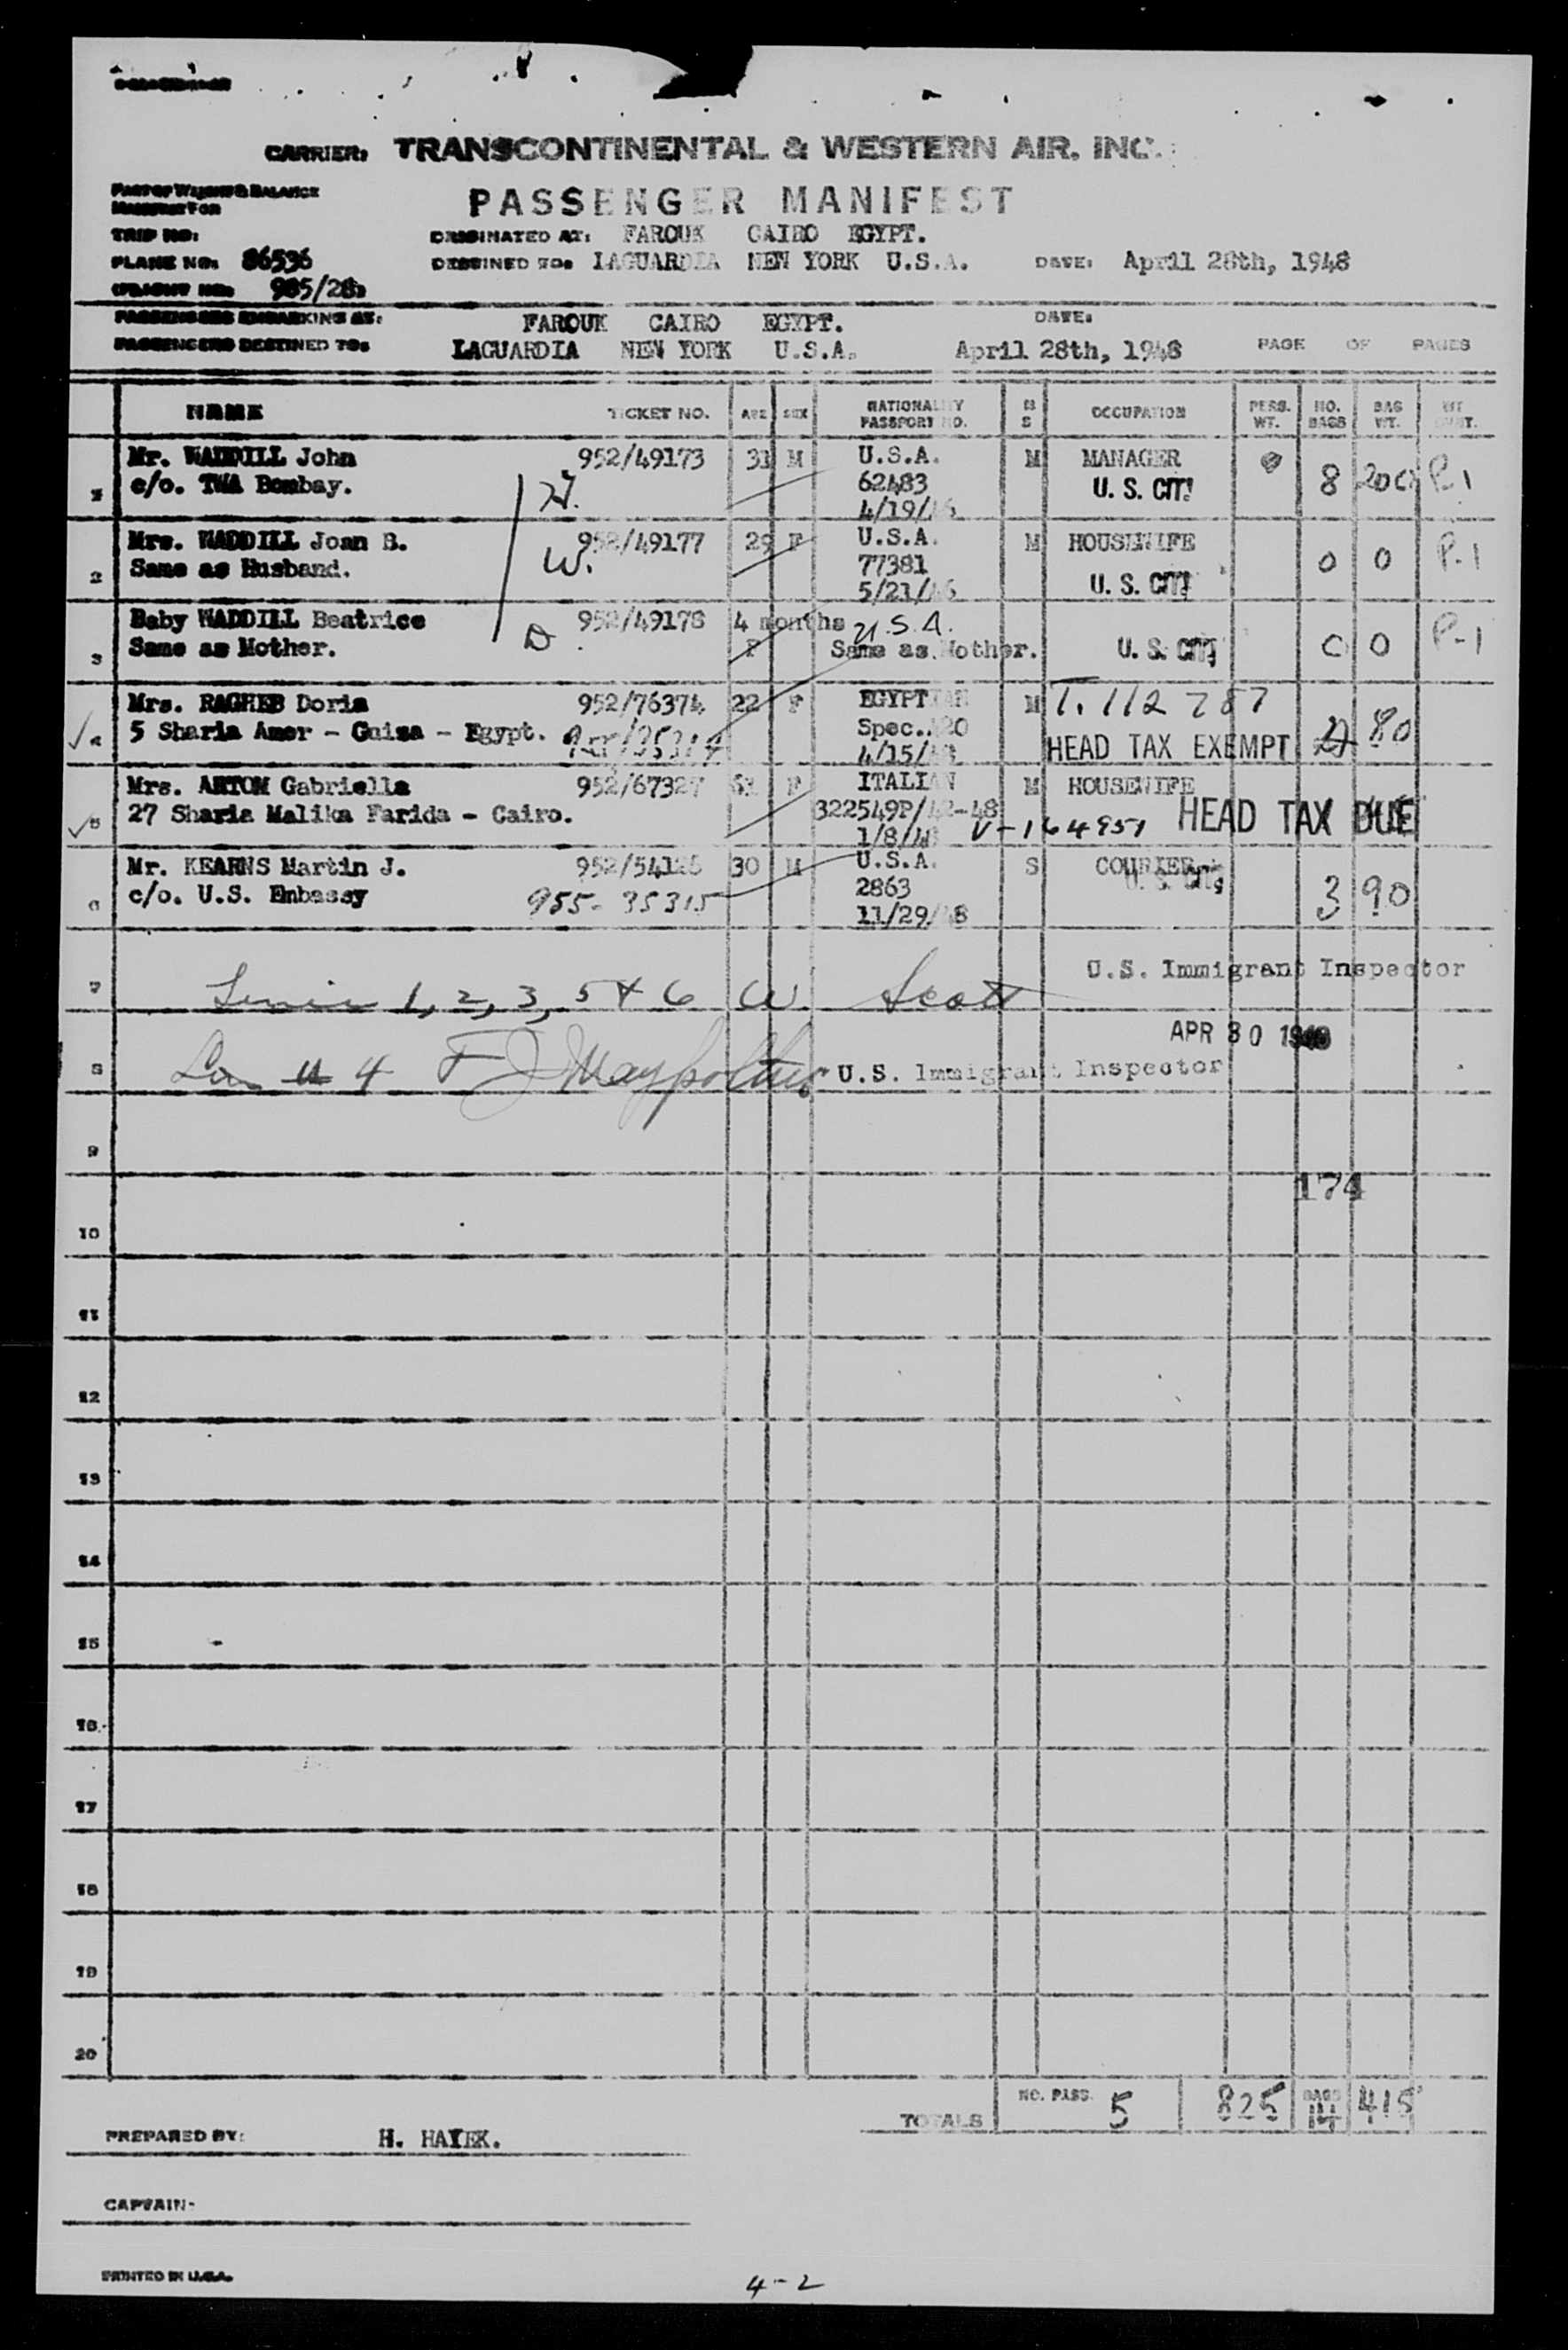 CARRIER: TRANSCONTINENTAL & WESTERN AIR, INC.
PART OF WEIGHT & BALANCE
MANIFEST FOR
PASSENGER MANIFEST
TRIP NO:
ORIGINATED AT: FAROUK CAIRO EGYPT.
PLANE NO: 86536
DESTINED TO: LAGUARDIA NEW YORK U.S.A. DATE: April 28th, 1948
FLIGHT NO: 985/28
PASSENGERS EMBARKING AT: FAROUK CAIRO EGYPT. DATE:
PASSENGERS DESTINED TO: LAGUARDIA NEW YORK U.S.A. April 28th, 1948 PAGE OF PAGES
NAME TICKET NO. AGE SEX NATIONALITY PASSPORT NO. M S OCCUPATION PERS. WT. NO. BAGS BAG WT. WT
1 Mr. WADDILL John 952/49173 31 M U.S.A. M MANAGER
c/o. TWA Bombay. H. 62483 U. S. CIT. 8 200 P-1
4/19/
2 Mrs. WADDILL Joan B. 952/49177 29 F U.S.A. M HOUSEWIFE
Same as Husband. W. 77381 U. S. CIT. 0 0 P-1
5/21/
3 Baby WADDILL Beatrice 952/49178 4 months U.S.A.
Same as Mother. D. F Same as Mother. U. S. CIT. 0 0 P-1
4 Mrs. RAGHEB Doria 952/76374 22 F EGYPTIAN M T. 112 787
5 Sharia Amer - Guiza - Egypt. 955/35314 Spec. HEAD TAX EXEMPT 80
4/15/
5 Mrs. ANTOM Gabriella 952/67327 F ITALIAN M HOUSEWIFE
27 Sharia Malika Farida - Cairo. 322549P/42-48 HEAD TAX DUE
1/8/ V-164951
6 Mr. KEARNS Martin J. 952/54126 30 M U.S.A. S COURIER
c/o. U.S. Embassy 955-35315 2863 U. S. CIT. 3 90
11/29/
U.S. Immigrant Inspector
7 1, 2, 3, 5 & 6 W Scott
APR 30 1948
8 4 F J U.S. Immigrant Inspector
9
174
10
11
12
13
14
15
16
17
18
19
20
TOTALS NO. PASS. 5 825 BAGS 14 415
PREPARED BY: H. HAYEK.
CAPTAIN:
PRINTED IN U.S.A.
4-2